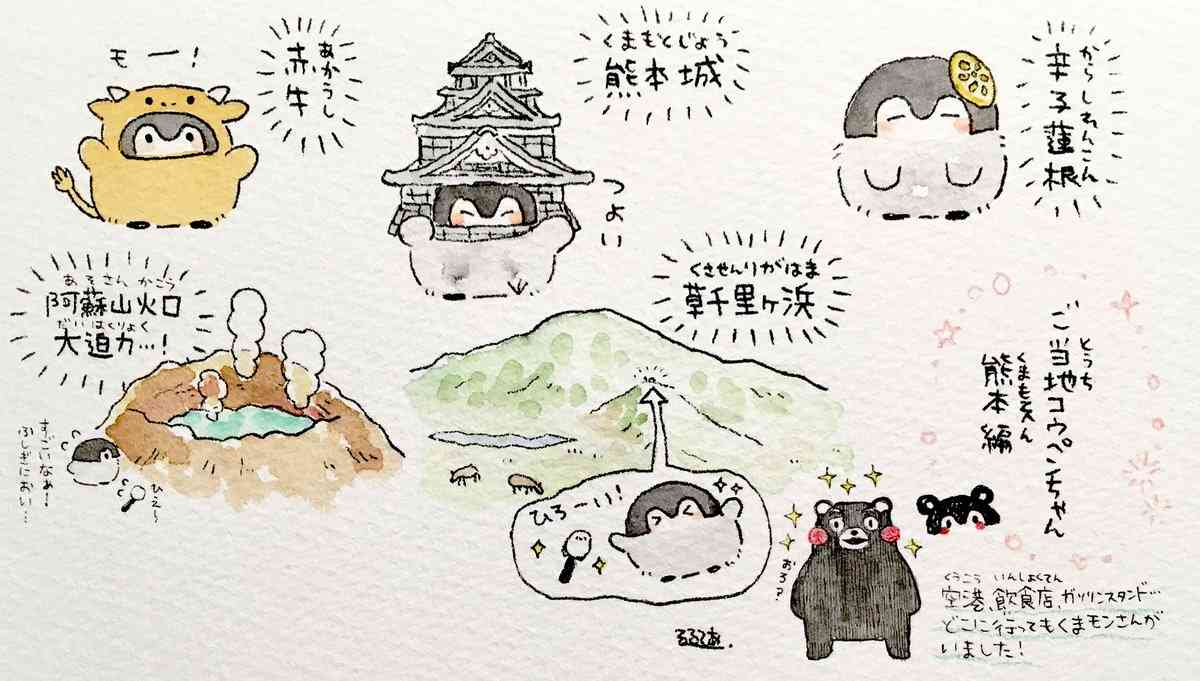 モー！
あかうし
赤牛
くまもとじょう
熊本城
つよい
からしれんこん
辛子蓮根
あそさんかこう
阿蘇山火口
だいはくりょく
大迫力…！
すごいなぁ！
ふしぎにおい…
ひえ〜
くさせんりがはま
草千里ヶ浜
ひろーい！
とうち
ご当地コウペンちゃん
くまもとへん
熊本編
おろ？
くうこう いんしょくてん
空港、飲食店、ガソリンスタンド…
どこに行ってもくまモンさんが
いました！
るるてあ.